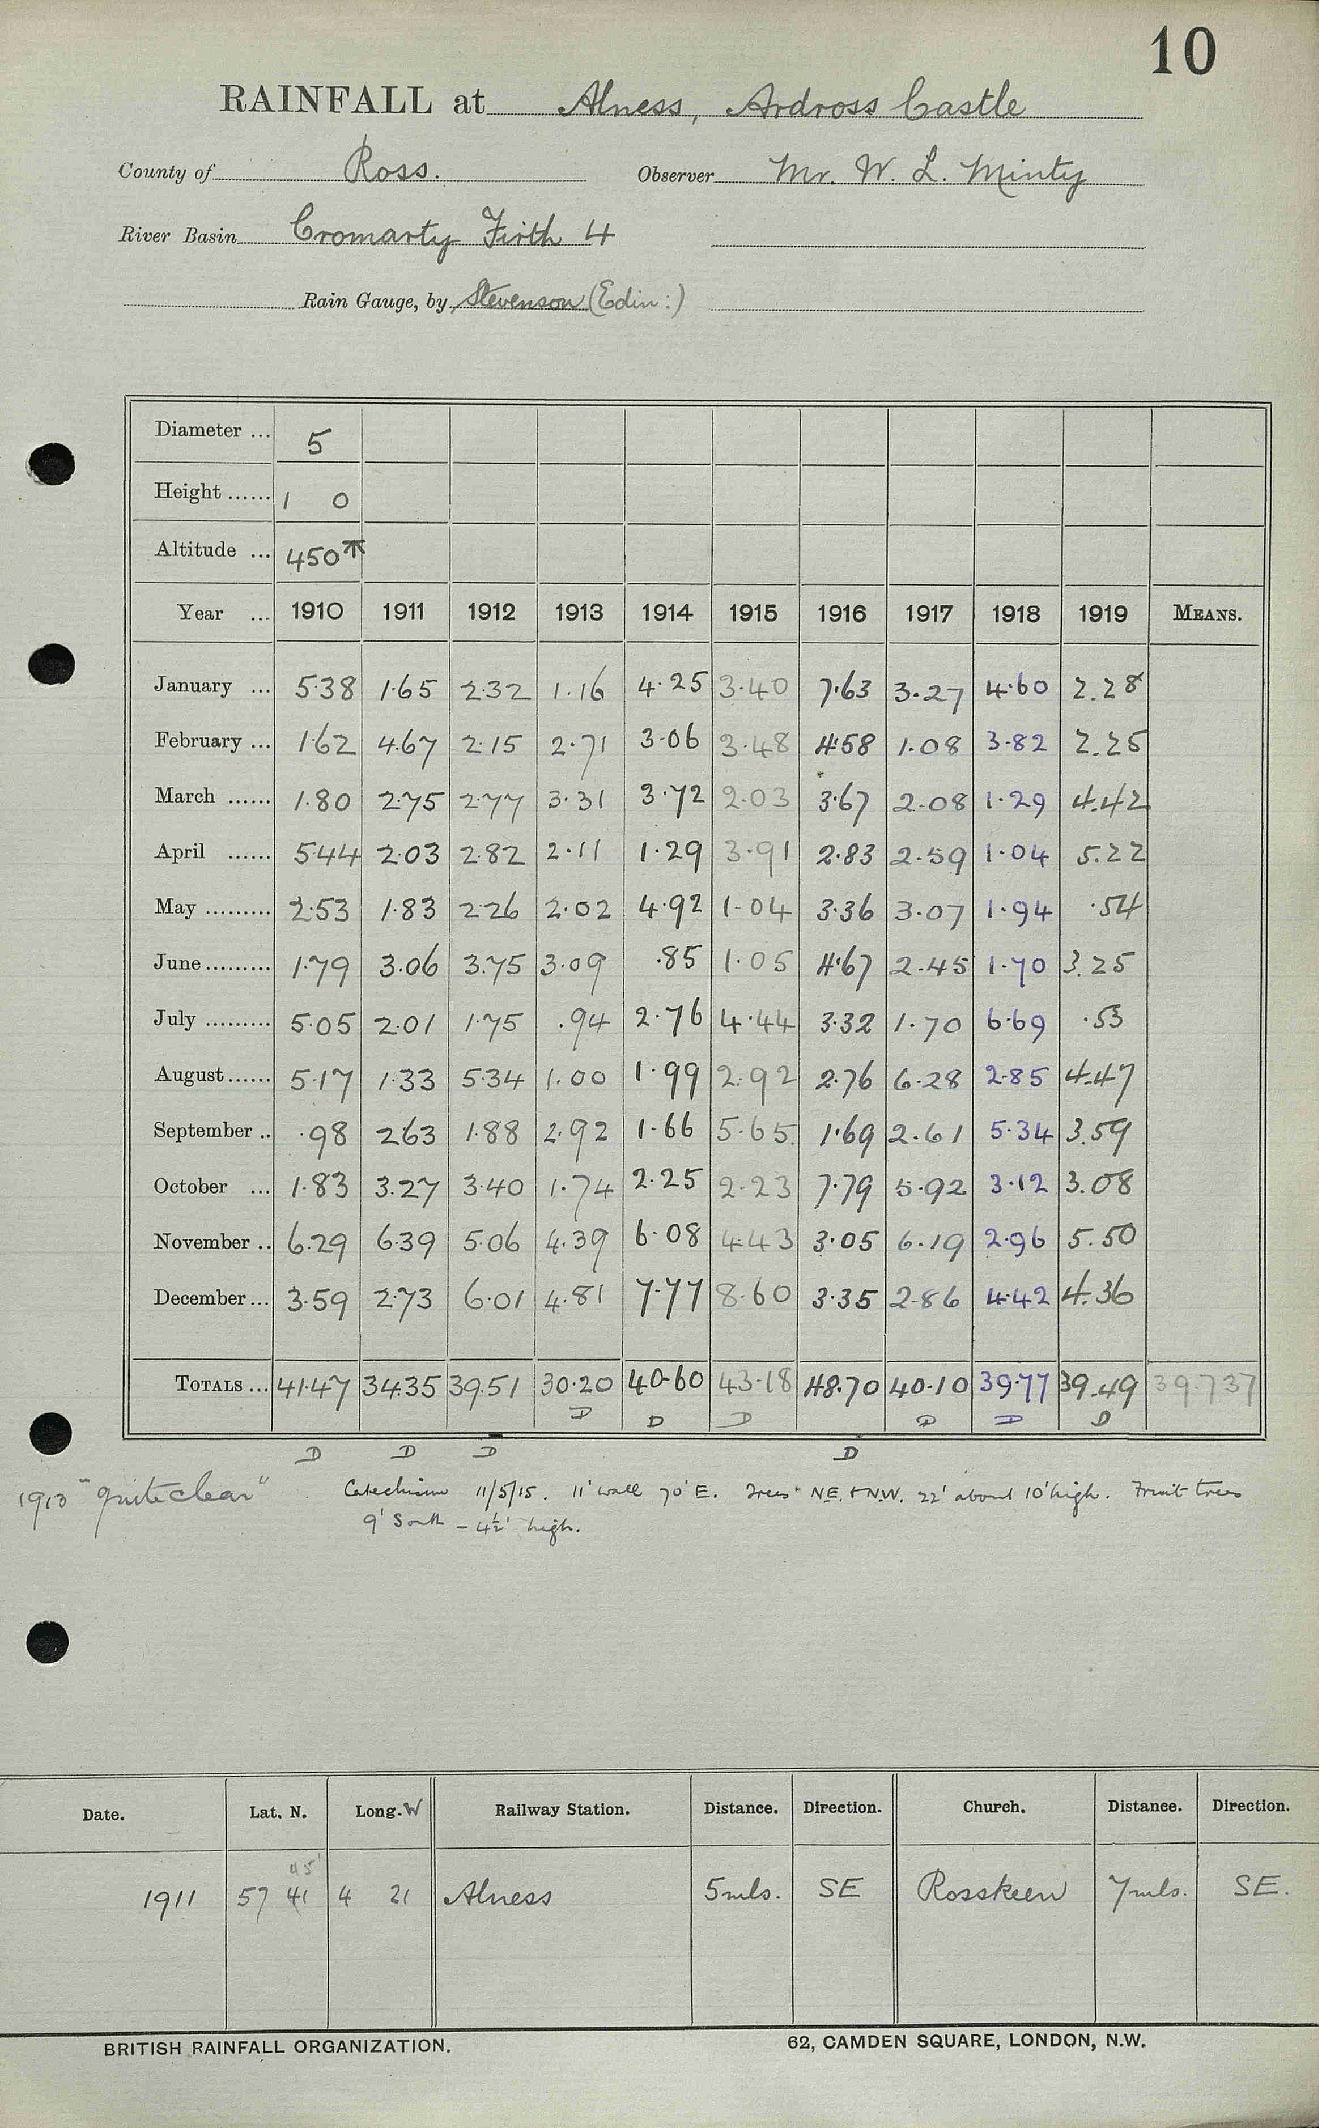 10
RAINFALL at Alness, Ardross Castle
County of Ross. Observer Mr. W. L. Minty
River Basin Cromarty Firth 4
Rain Gauge, by Stevenson (Edin:)
Diameter ... 5
Height ...... 1 0
Altitude ... 450
Year ... 1910 1911 1912 1913 1914 1915 1916 1917 1918 1919 MEANS.
January ... 5.38 1.65 2.32 1.16 4.25 3.40 7.63 3.27 4.60 2.28
February ... 1.62 4.67 2.15 2.71 3.06 3.48 4.58 1.08 3.82 2.25
March ...... 1.80 2.75 2.77 3.31 3.72 2.03 3.67 2.08 1.29 4.42
April ...... 5.44 2.03 2.82 2.11 1.29 3.91 2.83 2.59 1.04 5.22
May ......... 2.53 1.83 2.26 2.02 4.92 1.04 3.36 3.07 1.94 .54
June ......... 1.79 3.06 3.75 3.09 .85 1.05 4.67 2.45 1.70 3.25
July ......... 5.05 2.01 1.75 .94 2.76 4.44 3.32 1.70 6.69 .53
August ...... 5.17 1.33 5.34 1.00 1.99 2.92 2.76 6.28 2.85 4.47
September .. .98 2.63 1.88 2.92 1.66 5.65 1.69 2.61 5.34 3.59
October ... 1.83 3.27 3.40 1.74 2.25 2.23 7.79 5.92 3.12 3.08
November .. 6.29 6.39 5.06 4.39 6.08 4.43 3.05 6.19 2.96 5.50
December ... 3.59 2.73 6.01 4.81 7.77 8.60 3.35 2.86 4.42 4.36
TOTALS ... 41.47 34.35 39.51 30.20 40.60 43.18 48.70 40.10 39.77 39.49 39.737
D D D D D D
D D D D
1913 "quite clear" Catechism 11/5/15. 11' wall 70' E. Trees NE. + NW. 22' about 10' high. Fruit trees
9' South - 4½' high.
Date. Lat. N. Long. W Railway Station. Distance. Direction. Church. Distance. Direction.
45'
1911 57 41 4 21 Alness 5 mls. SE Rosskeen 7 mls. SE.
BRITISH RAINFALL ORGANIZATION. 62, CAMDEN SQUARE, LONDON, N.W.